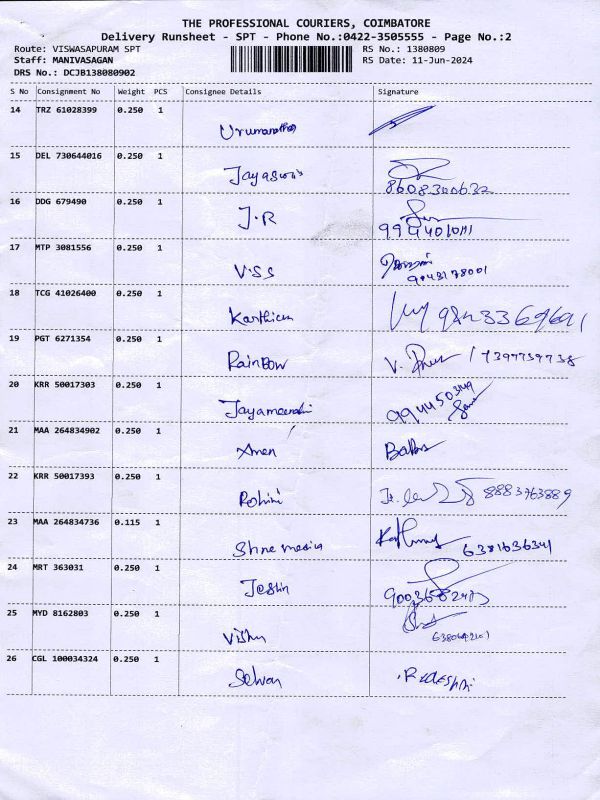 THE PROFESSIONAL COURIERS, COIMBATORE
Delivery Runsheet - SPT - Phone No.:0422-3505555 - Page No.:2
Route: VISWASAPURAM SPT RS No.: 1380809
Staff: MANIVASAGAN RS Date: 11-Jun-2024
DRS No.: DCJB138080902
S No Consignment No Weight PCS Consignee Details Signature
14 TRZ 61028399 0.250 1
15 DEL 730644016 0.250 1
8608300632
16 DDG 679490 0.250 1 J.R
17 MTP 3081556 0.250 1 V.S.S
9043178001
18 TCG 41026400 0.250 1 Karthica
19 PGT 6271354 0.250 1 Rainbow V.
20 KRR 50017303 0.250 1
21 MAA 264834902 0.250 1
22 KRR 50017393 0.250 1 Rohini 8883763889
23 MAA 264834736 0.115 1
6381636341
24 MRT 363031 0.250 1 Jestin
25 MYD 8162803 0.250 1 Vishnu
26 CGL 100034324 0.250 1 Selvan